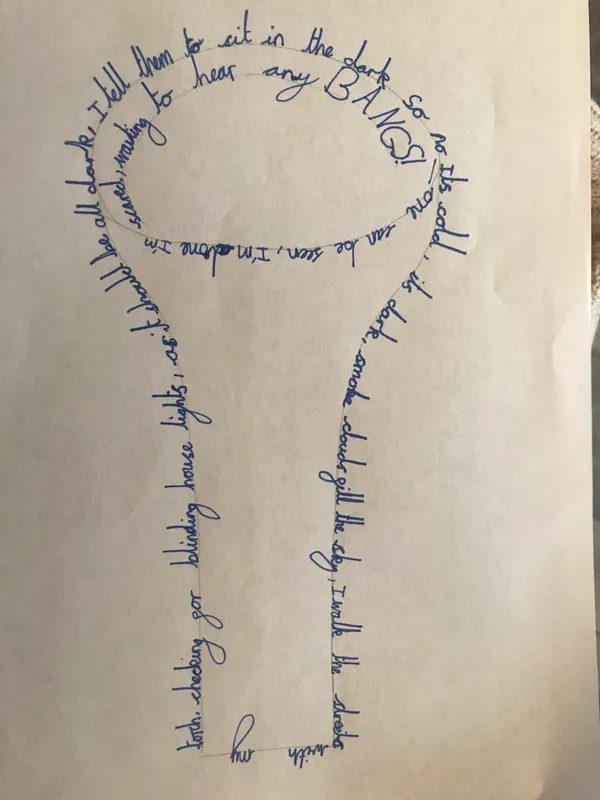 Its cold, its dark, smoke clouds fill the sky, I walk the streets
with my
torch, checking for blinding house lights, so it should be all dark, I tell them to sit in the dark so no
one can be seen, I'm alone I'm
scared, waiting to hear any BANGS!